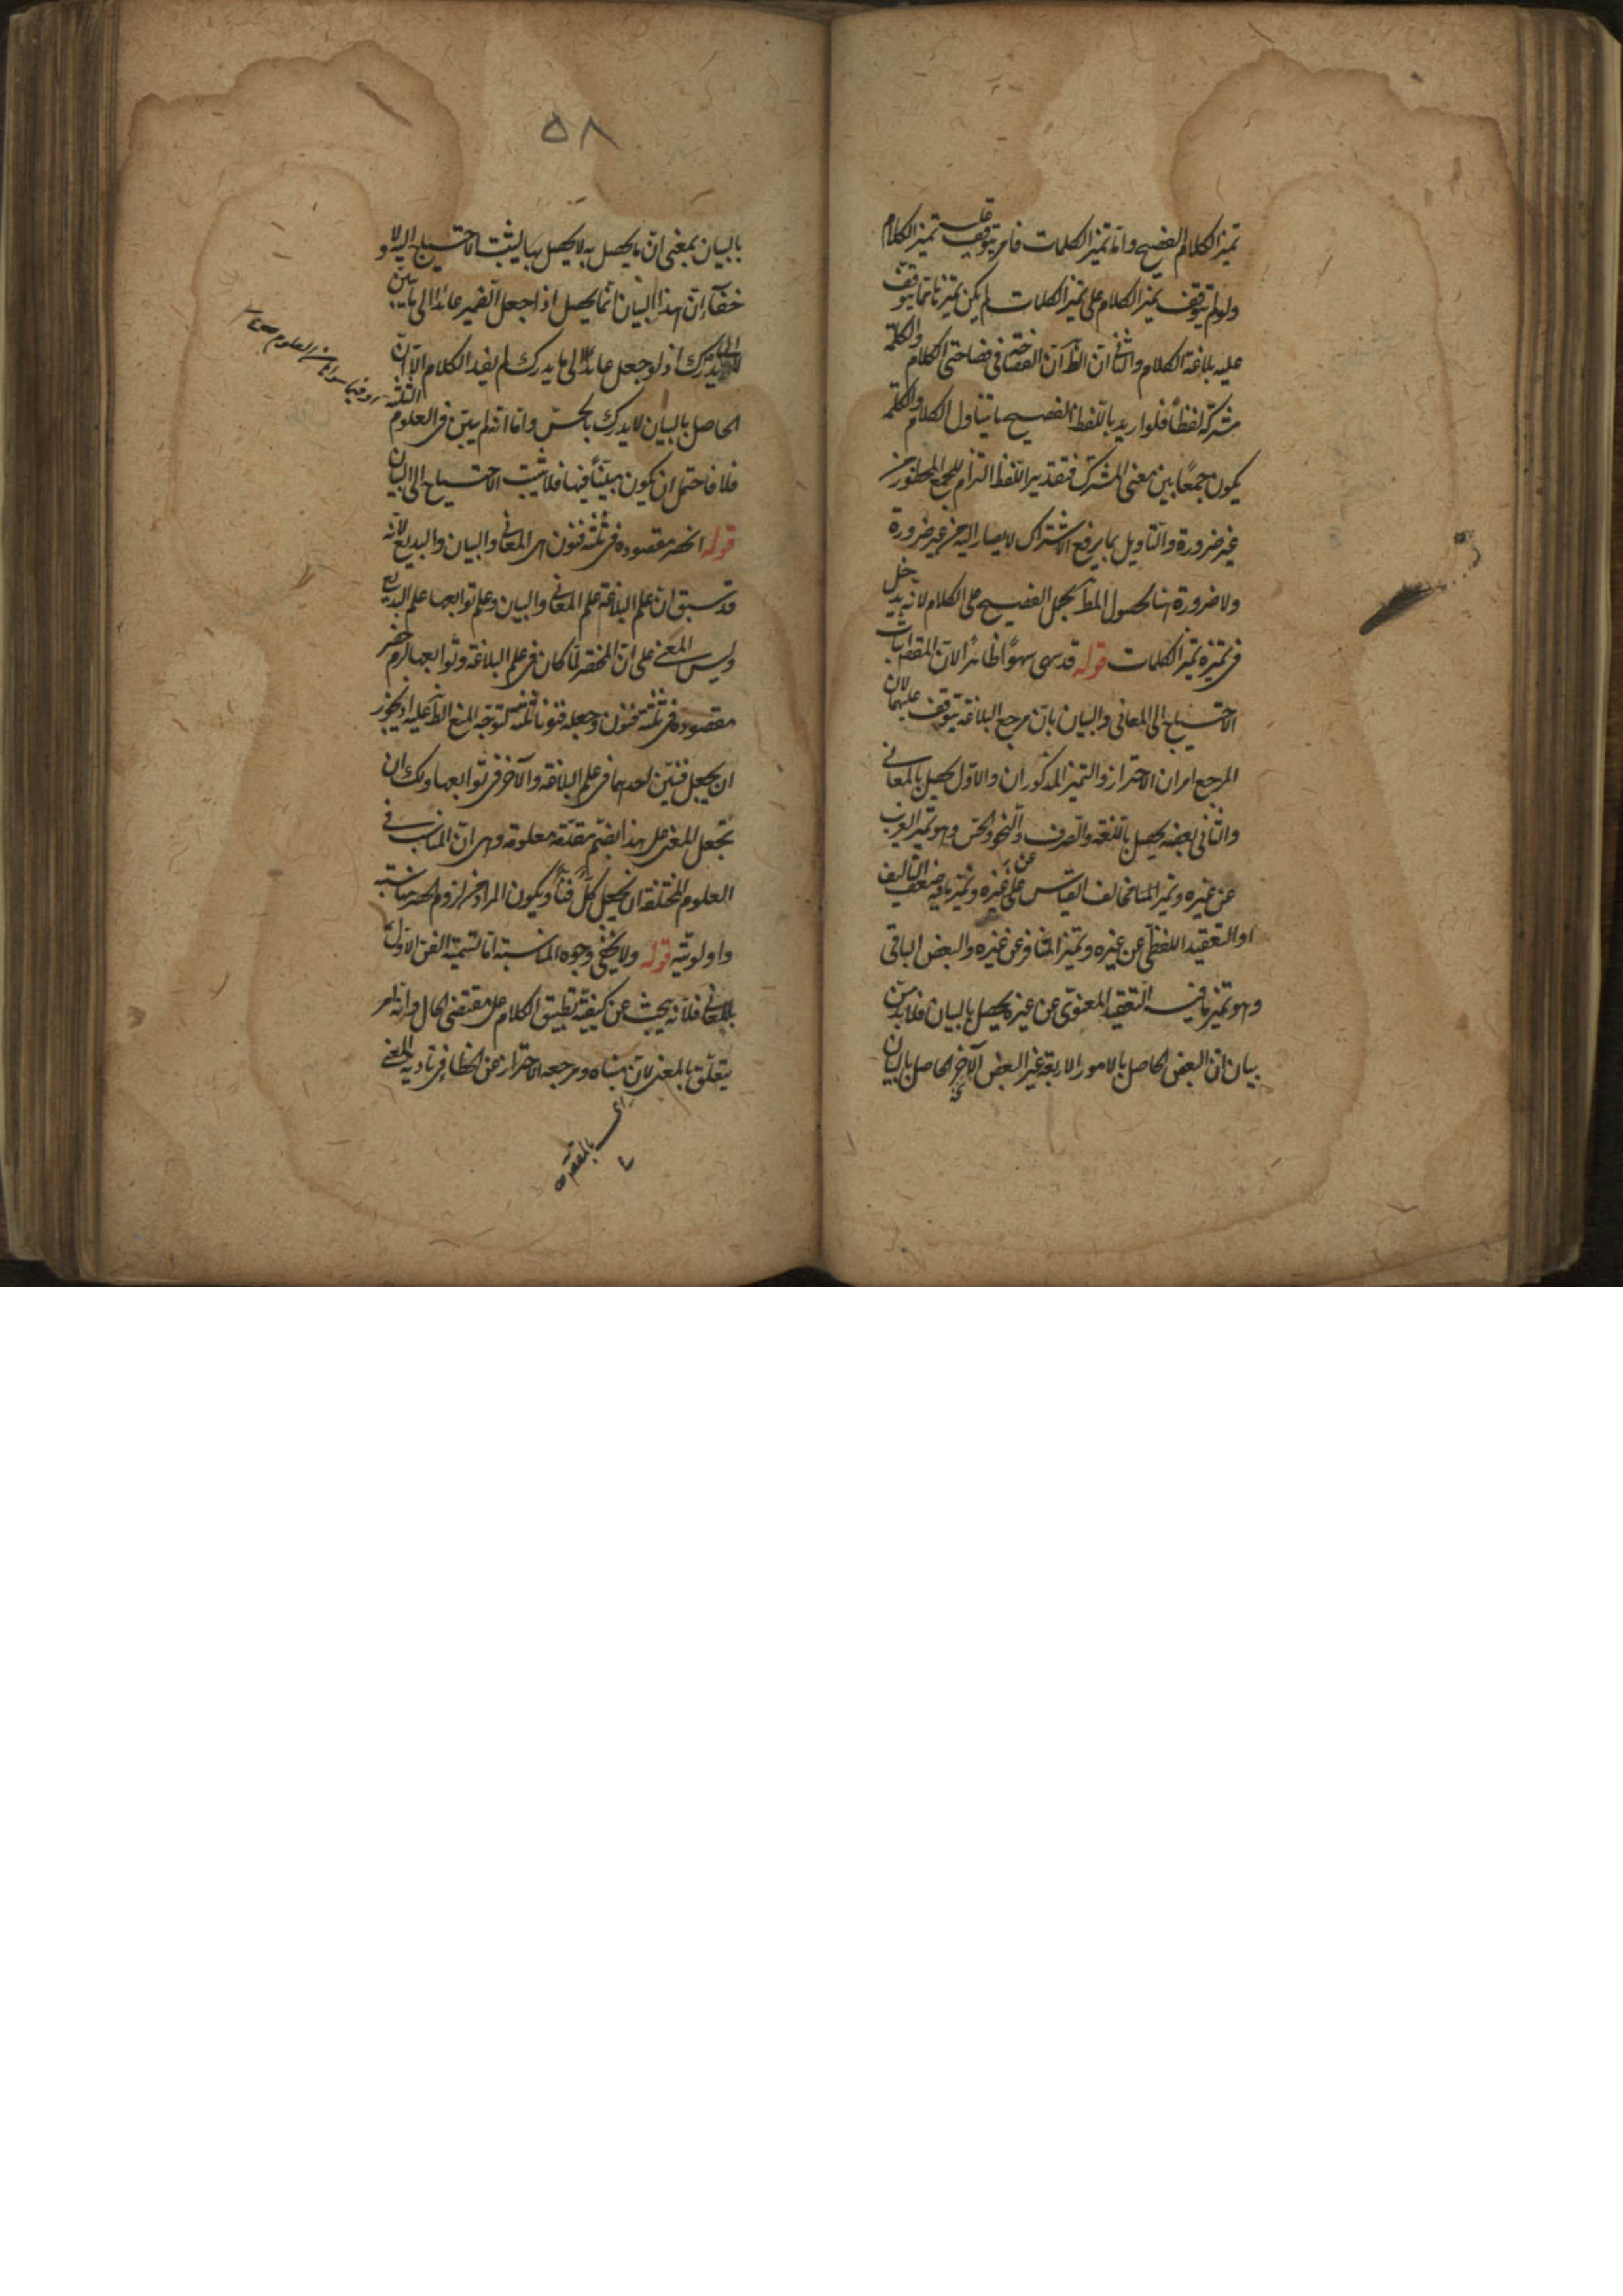 تميز الكلام الفصيح واما تميز الكلمات فامر يتوقف عليه تميز الكلام
ولو لم يتوقف تميز الكلام على تميز الكلمات لم يكن تميزنا مما يتوقف
عليه بلاغة الكلام والثاني ان الظ ان الفصاحة في فصاحتي الكلام والكلمة
مشتركة لفظا فلو اريد باللفظ الفصيح ما يتناول الكلام والكلمة
يكون جمعا بين معنى المشترك فتقدير اللفظ التزام للجمع المحظور من
غير ضرورة والتأويل بما يرفع الاشتراك لا يصار اليه من غير ضرورة
ولا ضرورة هنا لحصول المط بحمل الفصيح على الكلام لانه يدخل
في تميزه تميز الكلمات قوله قد سهى سهوا ظاهرا لان المقص اثبات
الاحتياج الى المعاني والبيان بان مرجع البلاغة يتوقف عليهما لان
المرجع امران الاحتراز والتميز المذكوران والاول يحصل بالمعاني
والثاني بعضه يحصل باللغة والصرف والنحو والحس وهو تميز الغريب
عن غيره وتميز المخالف القياس عن غيره وتميز ما فيه ضعف التاليف
او التعقيد اللفظي عن غيره وتميز المتنافر عن غيره والبعض الباقي
وهو تميز ما فيه التعقيد المعنوي عن غيره يحصل بالبيان فلا بد من
بيان ان البعض الحاصل بالامور الاربعة غير البعض الآخر الحاصل بالبيان
٥٨
بالبيان بمعنى ان ما يحصل به لا يحصل بها ليثبت الاحتياج اليه ولا
خفاء ان هذا البيان انما يحصل اذا جعل الضمير عائدا الى ما يبين
او يدرك اذ لو جعل عائدا الى ما يدرك لم يفد الكلام الا ان
الحاصل بالبيان لا يدرك بالحس واما انه لم يبين في العلوم الثلثة
فلا فاحتمل ان يكون مبينا فيها فلا يثبت الاحتياج الى البيان
قوله انحصر مقصوده في ثلثة فنون اى المعاني والبيان والبديع لانه
قد سبق ان علم البلاغة علم المعاني والبيان وعلم توابعها علم البديع
وليس المعنى على ان المختصر لما كان في علم البلاغة وتوابعها لزم حصر
مقصوده في ثلثة فنون وجعله فنونا ثلثة لتوجه المنع الظ عليه اذ يجوز
ان يجعل فنين احدهما في علم البلاغة والآخر في توابعها ولك ان
تجعل المعنى على هذا بضم مقدمة معلومة وهى ان المناسب في
العلوم المختلفة ان يجعل كل فنا ويكون المراد من لزوم الحصر مناسبته
واولويته قوله ولا يخفى وجوه المناسبة اما تسمية الفن الاول
بالمعاني فلانه يبحث عن كيفية تطبيق الكلام على مقتضى الحال وانه امر
يتعلق بالمعنى لان مبناه ومرجعه الاحتراز عن الخطاء في تادية المعنى